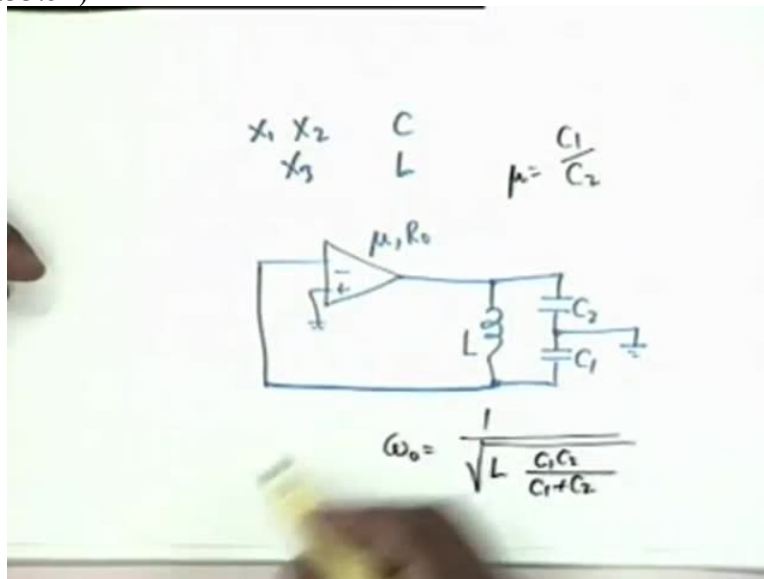 X₁ X₂ C
X₃ L
μ = C₁/C₂
μ, R₀
−
+
C₂
L
C₁
ω₀ = 1/√(L C₁C₂/(C₁+C₂))